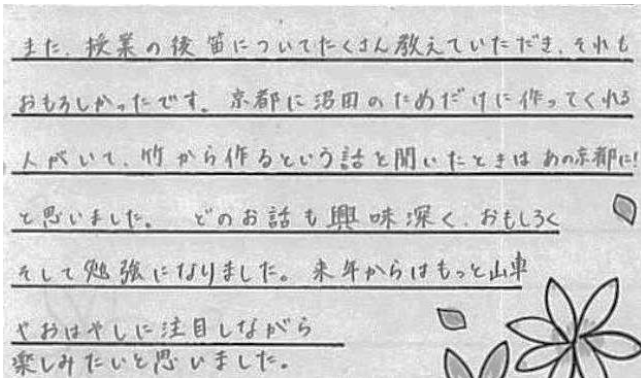 また、授業の後笛についてたくさん教えていただき、それも
おもろしかったです。京都に沼田のためだけに作ってくれる
人がいて、竹から作るという話を聞いたときは あの京都に!
と思いました。 どのお話も興味深く、おもしろく
そして勉強になりました。来年からはもっと山車
やおはやしに注目しながら
楽しみたいと思いました。